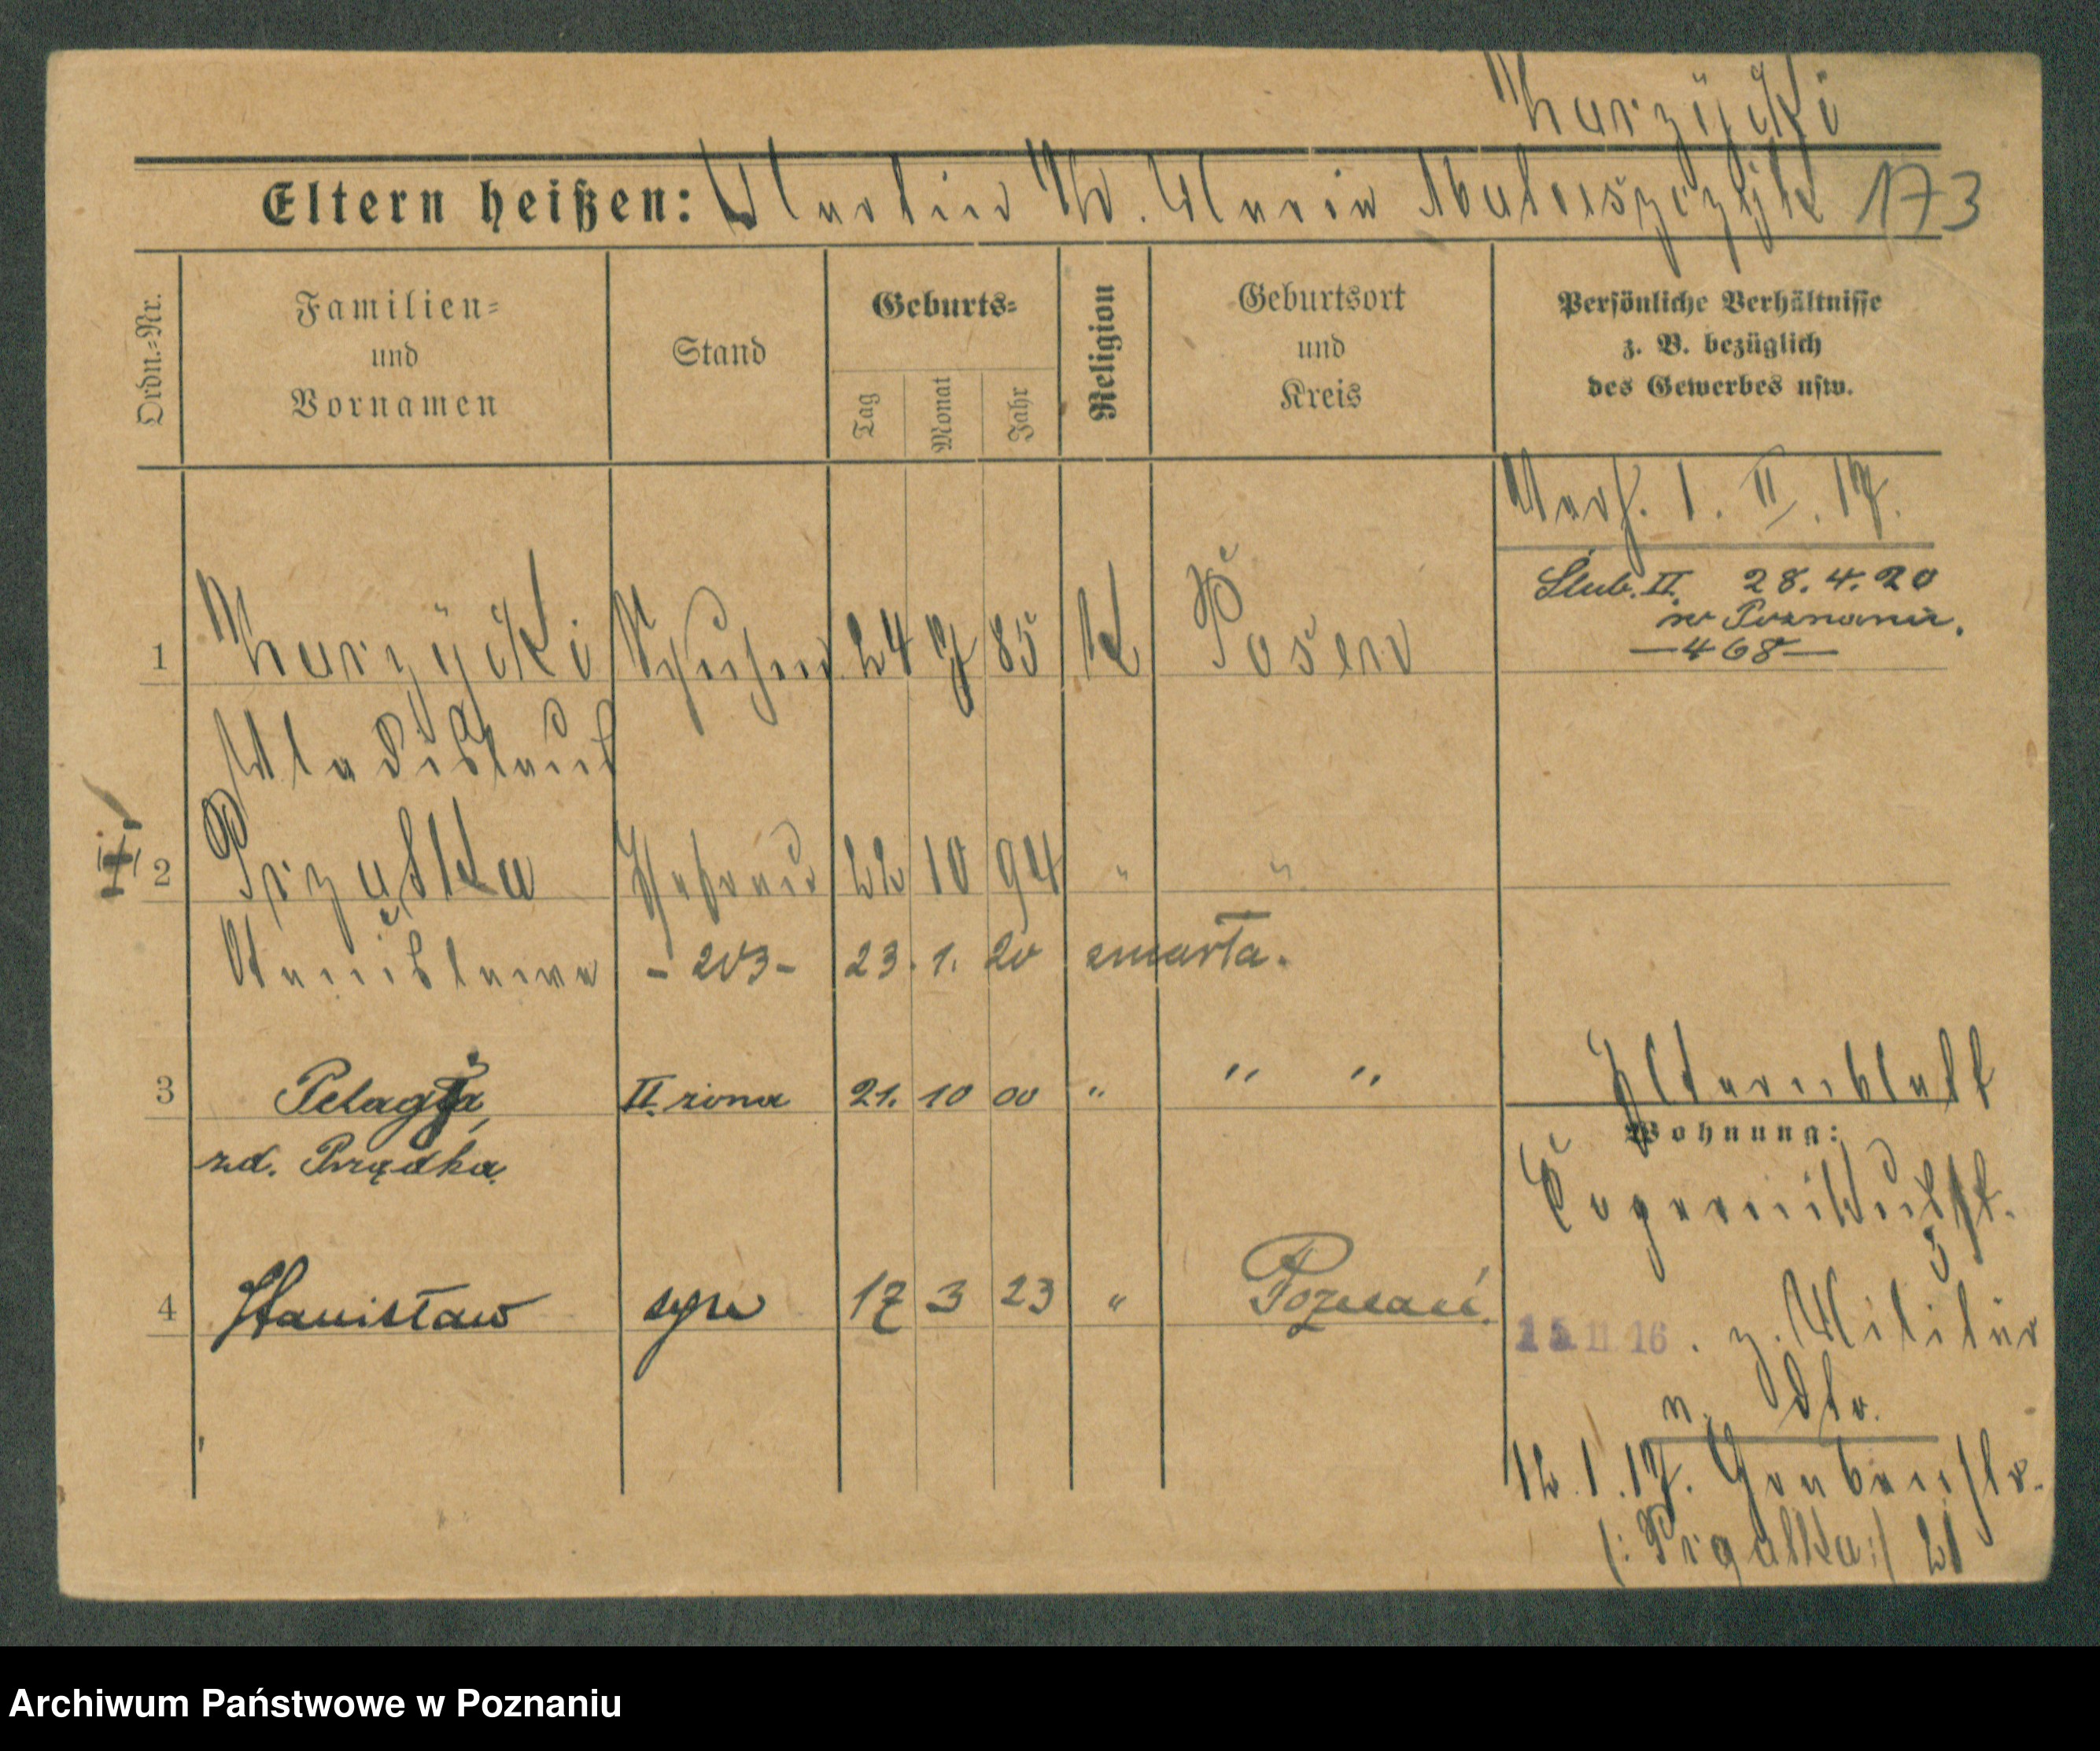 Kurzycki
Eltern heißen: Martin K. Maria Matuszczyk 173
Ordn.-Nr.
Familien-
und
Vornamen
Stand
Geburts-
Tag
Monat
Jahr
Religion
Geburtsort
und
Kreis
Persönliche Verhältnisse
z. B. bezüglich
des Gewerbes usw.
Verh. 1. II. 17.
Ślub. II. 28. 4. 20
w Poznaniu.
— 468 —
1 Kurzycki 24 7 85 K Posen
Wladislaus
2 Przybylka Ehefrau 22 10 94 " "
Stanislawa - 203 - 23. 1. 20 zmarła.
3 Pelagja, II. żona 21. 10 00 " " "
zd. Prządka.
4 Stanisław syn 17 3 23 " Poznań.
Elternblatt
Wohnung:
II 16. z. Militär
n. dto.
12. 1. 17. Grabenstr.
21
Archiwum Państwowe w Poznaniu